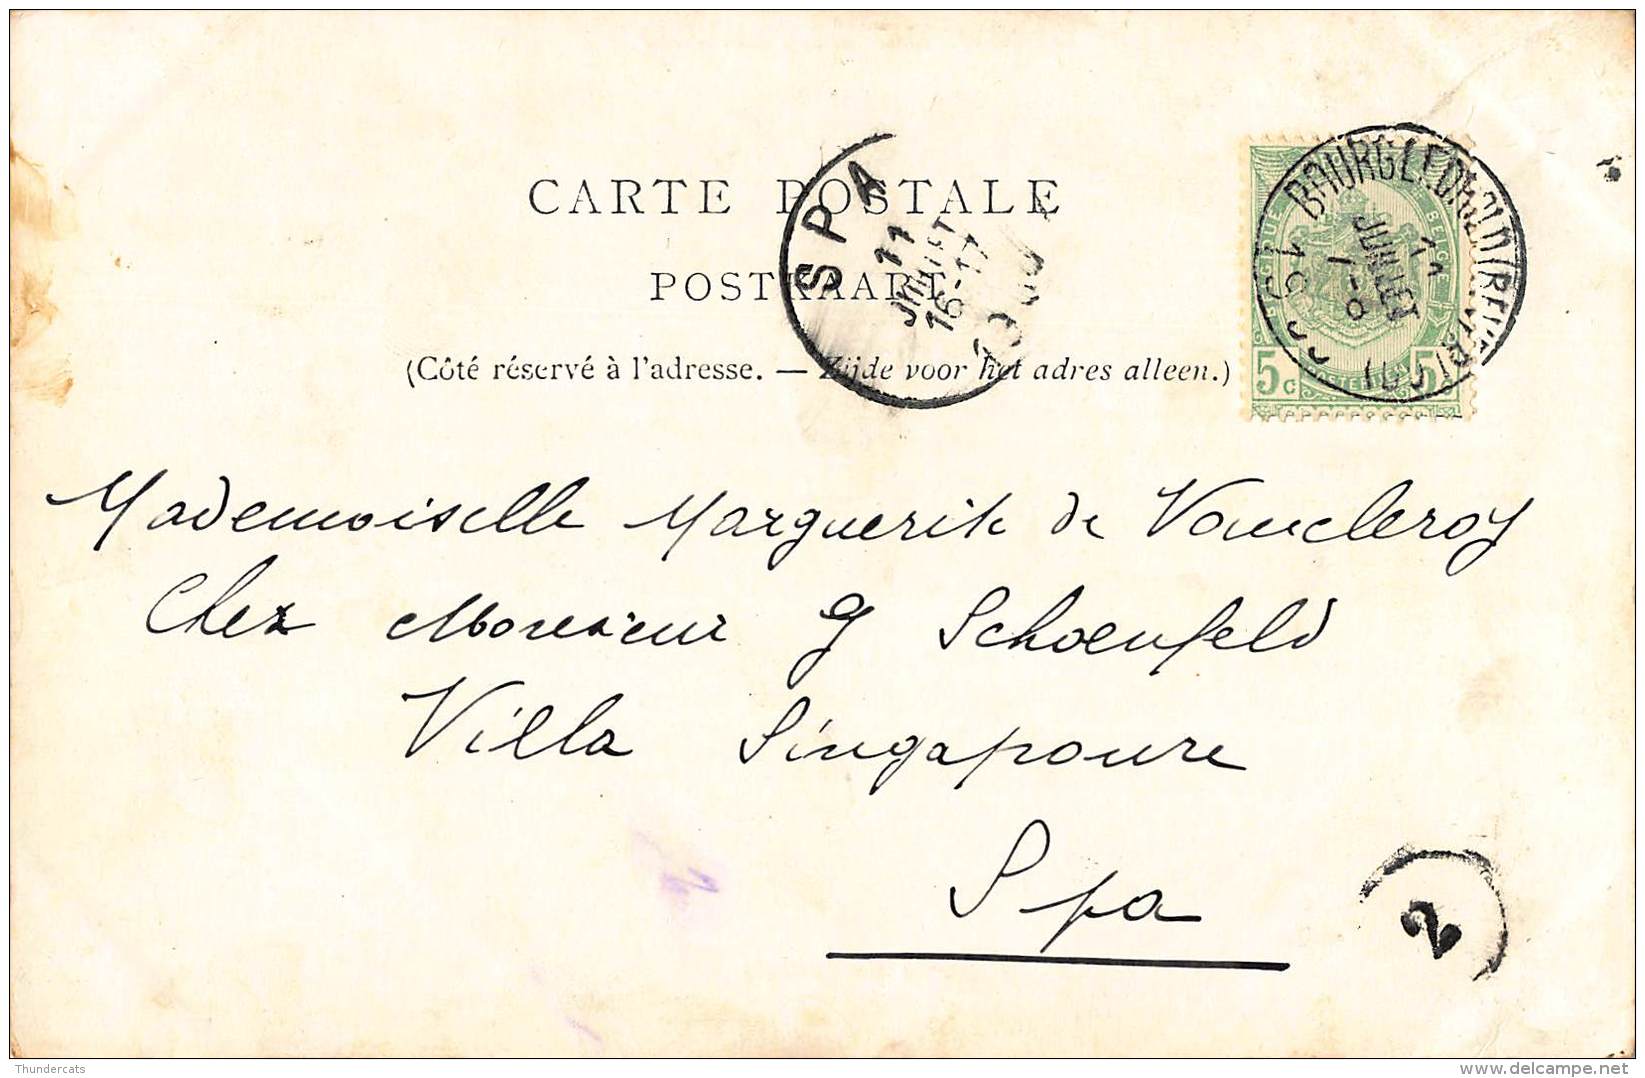 CARTE POSTALE
POSTKAART
(Côté réservé à l'adresse. — Zijde voor het adres alleen.)
SPA
11
JUILLET
16-17
11
JUILLET
7-8
BELGIQUE BELGIE
5c 5
Mademoiselle Marguerite de Vaucleroy
Chez Monsieur G Schoenfeld
Villa Singapoure
Spa
2
Thundercats
delcampe.net